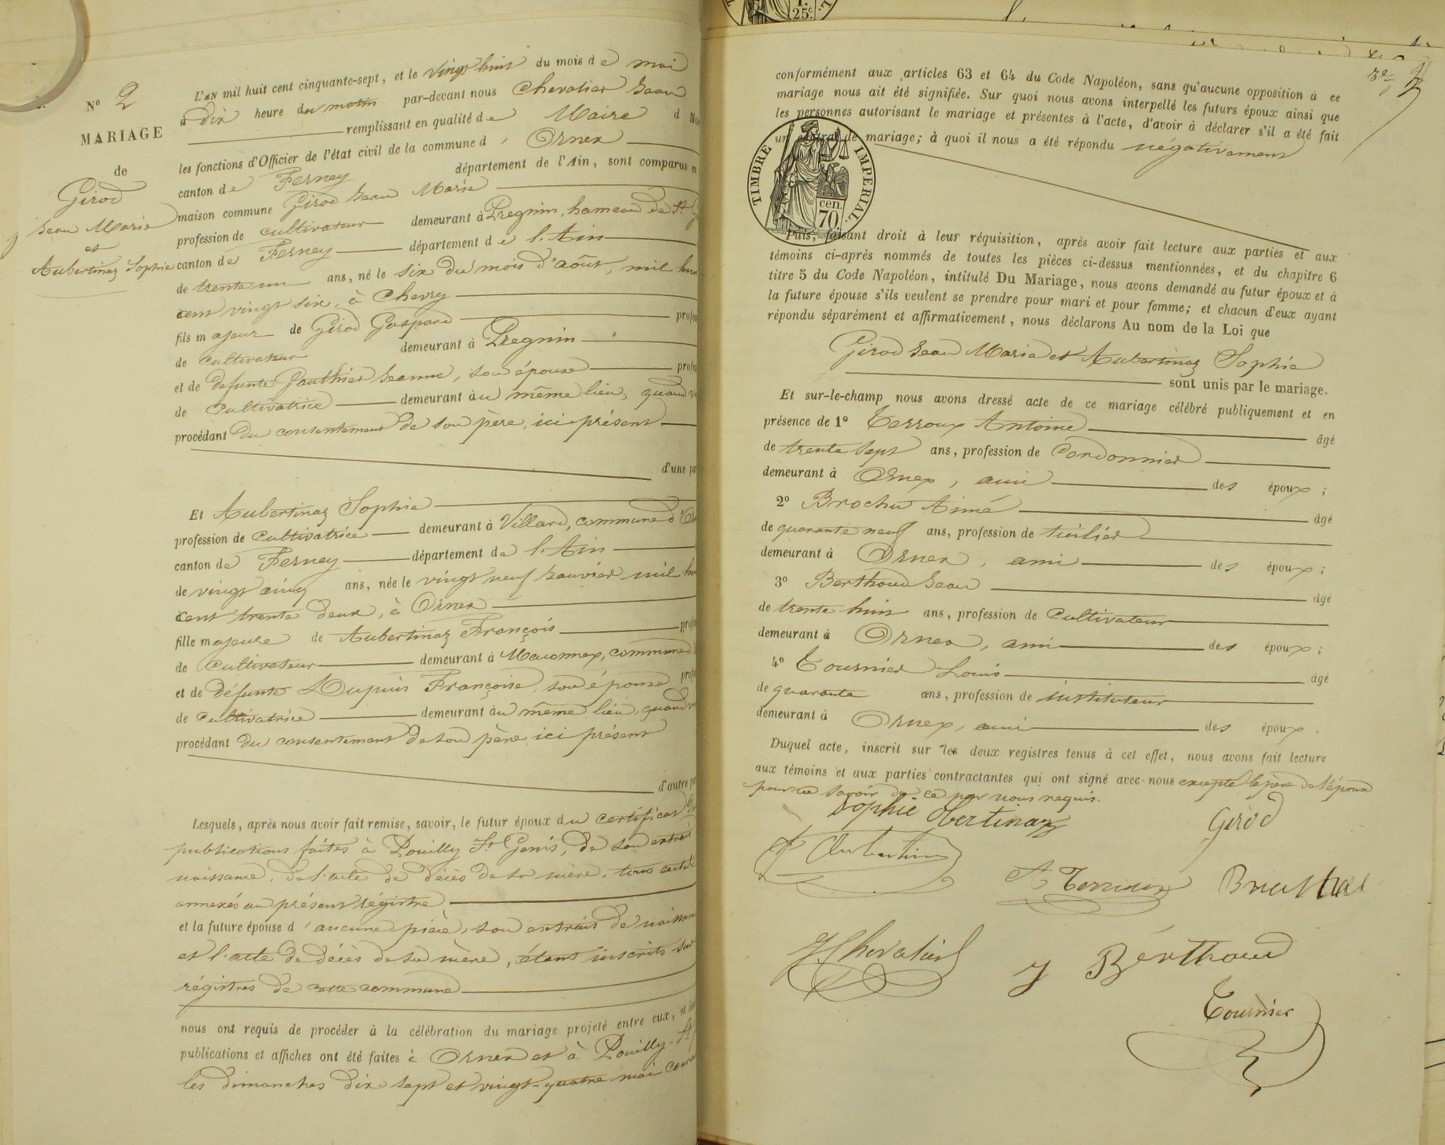 No 2
MARIAGE
de
Girod
Jean Marie
et
Aubertinaz Sophie
L'an mil huit cent cinquante-sept, et le vingt huit du mois de mai
à dix heure du matin par-devant nous Chevalier Jean
remplissant en qualité de Maire d
les fonctions d'Officier de l'état civil de la commune d'Ornex
canton de Ferney département de l'Ain, sont comparus en
maison commune Girod Jean Marie
profession de cultivateur demeurant à Pregnin, hameau de St
canton de Ferney département de l'Ain
de trente un ans, né le six du mois d'août, mil huit
cent vingt six, à Chevry
fils majeur de Girod Gaspard
de cultivateur demeurant à Pregnin
et de defunte Gauthier Jeanne, son épouse
de Cultivatrice demeurant au même lieu, quand
procédant du consentement de son père, ici présent
d'une
Et Aubertinaz Sophie
profession de Cultivatrice demeurant à Villard, commune d'
canton de Ferney département de l'Ain
de vingt cinq ans, née le vingt neuf janvier mil
cent trente deux, à Ornex
fille majeure de Aubertinaz François
de Cultivateur demeurant à Maconnex, commune
et de défunte Dupuis Françoise, son épouse
de Cultivatrice demeurant au même lieu, quand
procédant du consentement de son père ici présent
d'autre
Lesquels, après nous avoir fait remise, savoir, le futur époux du certificat
publications faites à Pouilly St Genis, de son extrait
naissance, de l'acte de décès de sa mère, tous
annexés au présent registre
et la future épouse d'aucune pièce, son extrait de
et l'acte de décès de sa mère, étant inscrits
régistres de commune
nous ont requis de procéder à la célébration du mariage projeté entre eux,
publications et affiches ont été faites à Ornex et à Pouilly-St
les dimanches dix sept et vingt-quatre mai
25c
conformément aux articles 63 et 64 du Code Napoléon, sans qu'aucune opposition à ce
mariage nous ait été signifiée. Sur quoi nous avons interpellé les futurs époux ainsi que
les personnes autorisant le mariage et présentes à l'acte, d'avoir à déclarer s'il a été fait
un contrat de mariage; à quoi il nous a été répondu negativement
TIMBRE IMPERIAL
cen. 70
Puis, faisant droit à leur réquisition, après avoir fait lecture aux parties et aux
témoins ci-après nommés de toutes les pièces ci-dessus mentionnées, et du chapitre 6
titre 5 du Code Napoléon, intitulé Du Mariage, nous avons demandé au futur époux et à
la future épouse s'ils veulent se prendre pour mari et pour femme; et chacun d'eux ayant
répondu séparément et affirmativement, nous déclarons Au nom de la Loi que
Girod Jean Marie et Aubertinaz Sophie
sont unis par le mariage.
Et sur-le-champ nous avons dressé acte de ce mariage célébré publiquement et en
présence de 1o Terroux Antoine âgé
de trente sept ans, profession de Cordonnier
demeurant à Ornex, ami des époux;
2o Brochu Aimé âgé
de quarante neuf ans, profession de tuilier
demeurant à Ornex, ami des époux;
3o Berthoud Jean âgé
de trente huit ans, profession de Cultivateur
demeurant à Ornex, ami des époux;
4o Tournier Louis âgé
de quarante ans, profession de instituteur
demeurant à Ornex, ami des époux.
Duquel acte, inscrit sur les deux registres tenus à cet effet, nous avons fait lecture
aux témoins et aux parties contractantes qui ont signé avec nous excepté le père de l'époux
pour ne savoir de ce par nous requis.
Sophie Obertinaz
Girod
A Terroux
J. Chevalier
Berthoud
Tournier